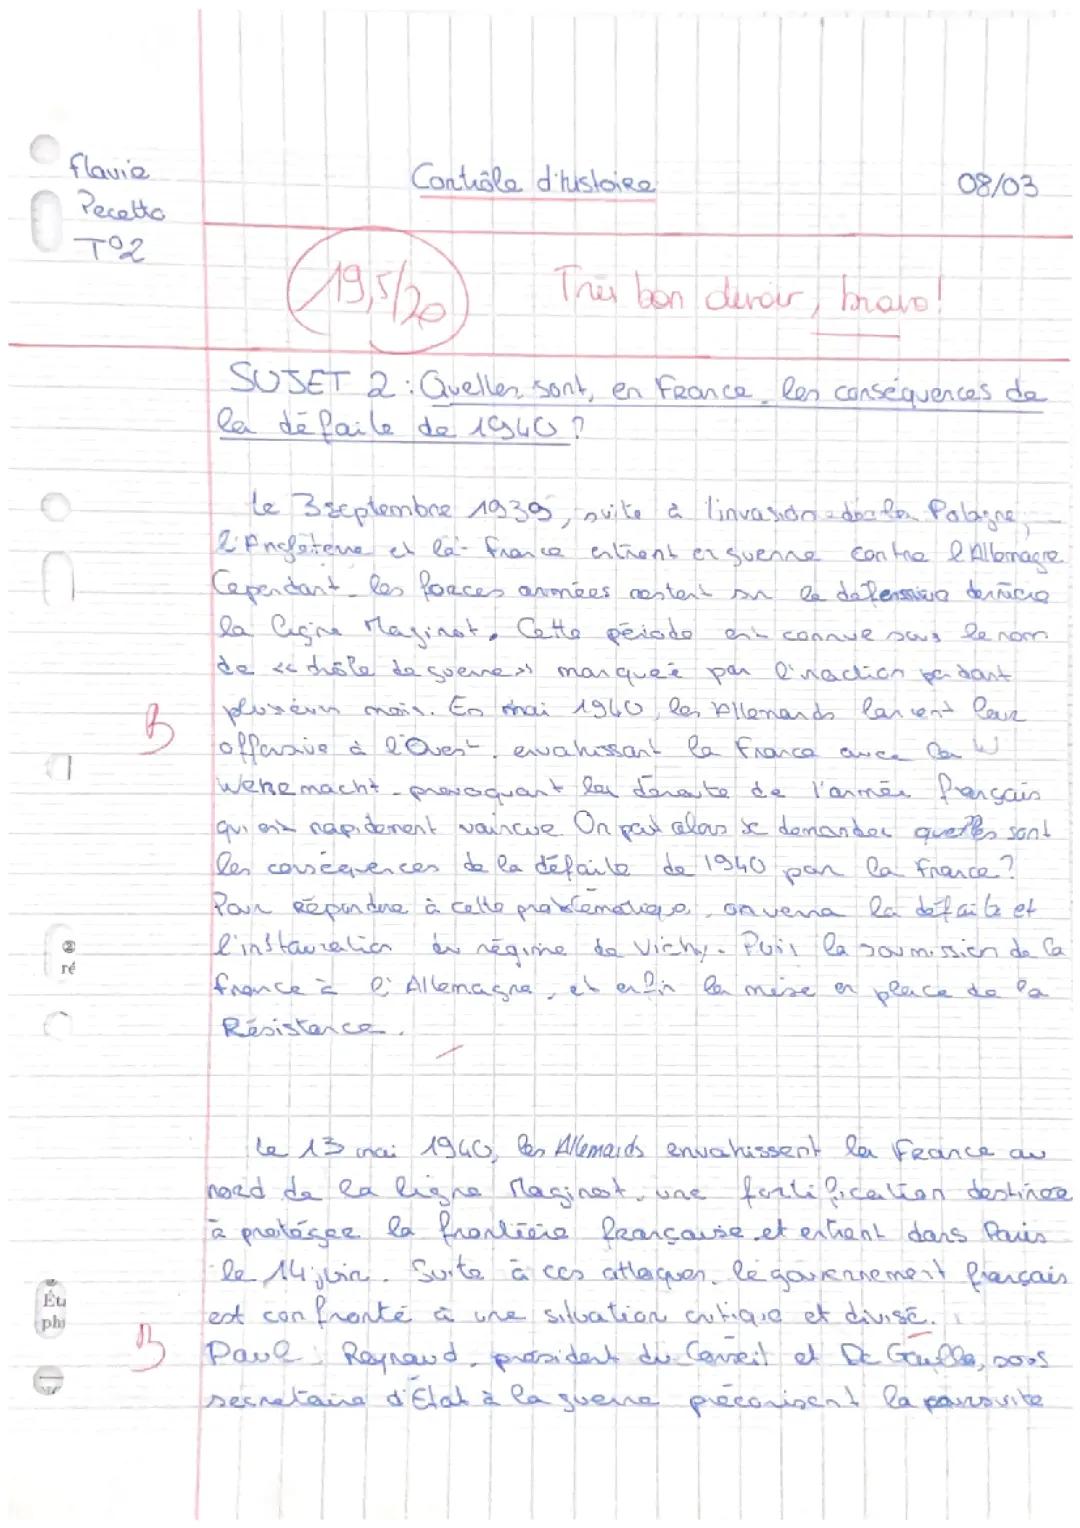 flavie
Pecetto
T°2
Contrôle d'histoire
08/03
19,5/20
Très bon devoir, bravo!
SUJET 2 : Quelles sont, en France, les conséquences de
la défaite de 1940 ?
Le 3 septembre 1939, suite à l'invasion de la Pologne,
l'Angleterre et la France entrent en guerre contre l'Allemagne.
Cependant les forces armées restent sur la défensive derrière
la ligne Maginot. Cette période est connue sous le nom
de << drôle de guerre >> marquée par l'inaction pendant
plusieurs mois. En mai 1940, les Allemands lancent leur
B
offensive à l'Ouest, envahissant la France avec la W
Wehrmacht provoquant la déroute de l'armée français
qui est rapidement vaincue. On peut alors se demander quelles sont
les conséquences de la défaite de 1940 par la France ?
Pour répondre à cette problématique, on verra la défaite et
l'instauration du régime de Vichy. Puis la soumission de la
france à l'Allemagne, et enfin la mise en place de la
Résistance.
ré
Le 13 mai 1940, les Allemands envahissent la France au
nord de la ligne Maginot, une fortification destinée
à protéger la frontière française et entrent dans Paris
le 14 juin. Suite à ces attaques, le gouvernement français
est confronté à une situation critique et divisé.
Ét
ph
B
Paul Reynaud, président du Conseil et De Gaulle, sous
secrétaire d'État à la guerre préconisent la poursuite